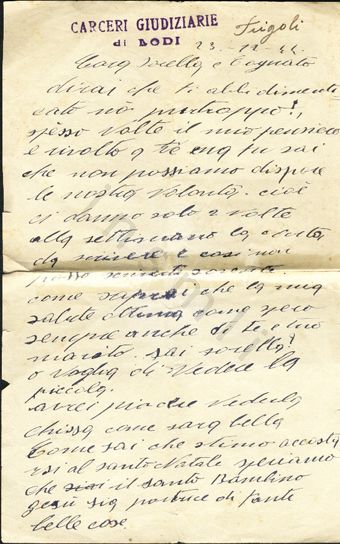 CARCERI GIUDIZIARIE
di LODI
Frigoli
23-12-44
Cara Sorella e Cognato
dirai che ti abbi dimenti
cato no purtroppo!,
spesso volte il mio pensiero
è rivolto a te ma tu sai
che non possiamo disporre
le nostra volontà. cioè
ci danno solo 2 volte
alla settimana la carta
da scrivere e così non
posso
come saprai che la mia
salute ottima come spero
sempre anche di te e tuo
marito. sai sorella!
o voglia di vedere la
piccola.
avrei piacere vederla
chissa come sara bella
Come sai che stiamo accosta
rsi al santo Natale speriamo
che il santo Bambino
gesù sia portore di tante
belle cose